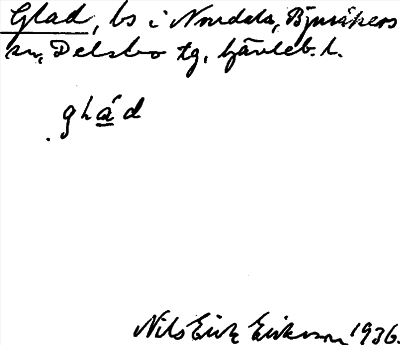 Glad, bs i Norrdala, Bjuråkers
sn, Delsbo tg, Gävleb. l.
ghá̲d
Nils Eric Eriksson 1936.